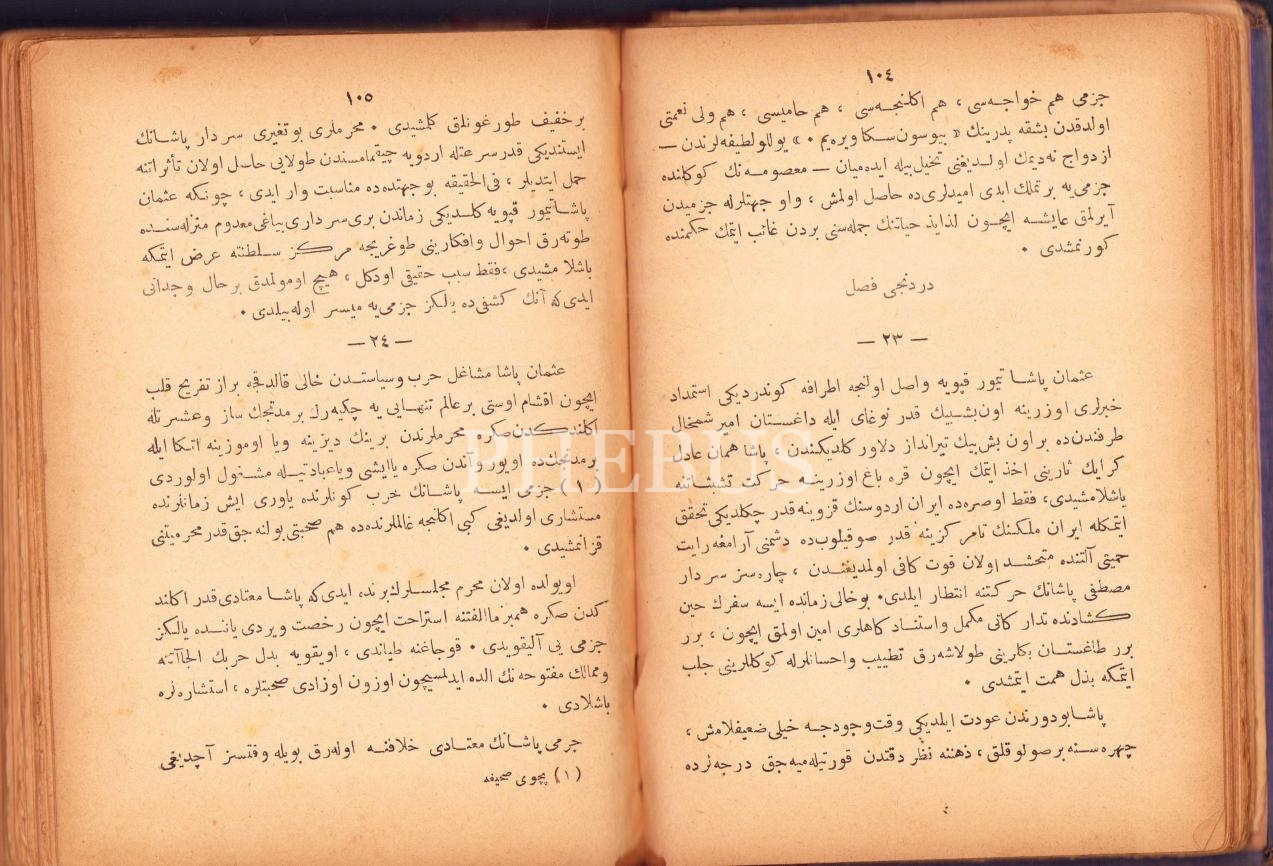 ١٠٤
جزمی هم خواجه‌سی ، هم اکلنجه‌سی ، هم حامیسی ، هم ولی نعمتی
اولدقدن بشقه پدرینك « بیوسون سکا ویره‌یم . » یوللو لطیفه‌لرندن —
ازدواج نه‌دیمك اولدیغنی تخیل بیله ایده‌میان — معصومه‌نك کوکلنده
جزمی‌یه بر تملك ابدی امیدلری‌ده حاصل اولمش ، واو جهتلرله جزمیدن
آیرلمق عایشه ایچون لذایذ حیاتنك جمله‌سنی بردن غائب ایتمك حکمنده
کورنمشدی .
دردنجی فصل
— ٢٣ —
عثمان پاشا تیمور قپویه واصل اولنجه اطرافه کوندردیکی استمداد
خبرلری اوزرینه اون‌بشبیك قدر نوغای ایله داغستان امیر شمخال
طرفندن‌ده بر اون بش بیك تیرانداز دلاور کلدیکندن ، پاشا همان عادل
کرایك ثارینی اخذ ایتمك ایچون قره باغ اوزرینه حرکت تشبثاتنه
باشلامشیدی، فقط اوصره‌ده ایران اردوسنك قزوینه قدر چکلدیکی تحقق
ایتمکله ایران ملکنك تا مرکزینه قدر صوقیلوب‌ده دشمنی آرامغه رایت
حمیتی آلتنده متحشد اولان قوت کافی اولمدیغندن ، چاره‌سز سردار
مصطفی پاشانك حرکتنه انتظار ایلدی. بوخالی زمانده ایسه سفرك حین
کشادنده تدارکاتی مکمل واستنادکاهلری امین اولمق ایچون ، برر
برر طاغستان بکلرینی طولاشه‌رق تطییب واحسانلرله کوکللرینی جلب
ایتمکه بذل همت ایتمشدی .
پاشا بودورندن عودت ایلدیکی وقت وجودجه خیلی ضعیفلامش ،
چهره‌سنه بر صولوقلق ، ذهننه نظر دقتدن قورتیله‌میه‌جق درجه‌لرده
١٠٥
بر خفیف طورغونلق کلمشیدی . محرملری بو تغیری سردار پاشانك
ایستدیکی قدر سرعتله اردویه چیقمامسندن طولایی حاصل اولان تأثراتنه
حمل ایتدیلر ، فی‌الحقیقه بو جهتده‌ده مناسبت وار ایدی ، چونکه عثمان
پاشا تیمور قپویه کلدیکی زماندن بری سرداری بیاغی معدوم منزله‌سنده
طوته‌رق احوال وافکارینی طوغریجه مرکز سلطنته عرض ایتمکه
باشلامشیدی ، فقط سبب حقیقی او دکل ، هیچ اومولمدق بر حال وجدانی
ایدی که آنك کشفی‌ده یالکز جزمی‌یه میسر اوله‌بیلدی .
— ٢٤ —
عثمان پاشا مشاغل حرب وسیاستدن خالی قالدقجه براز تفریح قلب
ایچون اقشام اوستی بر عالم تنهایی‌یه چکیه‌رك بر مدتجك ساز وعشرتله
اکلندکدن صکره محرملرندن برینك دیزینه ویا اوموزینه اتکا ایله
بر مدتجك‌ده اویور وآندن صکره یا ایشی ویا عبادتیله مشغول اولوردی
(١) جزمی ایسه پاشانك حرب کونلرنده یاوری ایش زمانلرنده
مستشاری اولدیغی کبی اکلنجه عالملرنده‌ده هم صحبتی بولنه‌جق قدر محرمیتنی
قزانمشیدی .
اویولده اولان محرم مجلسلرك برنده، ایدی که پاشا معتادی قدر اکلند
کدن صکره همبزم الفتنه استراحت ایچون رخصت ویردی یاننده یالکز
جزمی یی آلیقویدی . قوجاغنه طیاندی ، اویقویه بدل حربك الجاآتنه
وممالك مفتوحه‌نك الده ایدلمسیچون اوزون اوزادی صحبتلره ، استشاره‌لره
باشلادی .
جزمی پاشانك معتادی خلافنه اوله‌رق بویله وقتسز آچدیغی
(١) پچوی صحیفه
PHEBUS